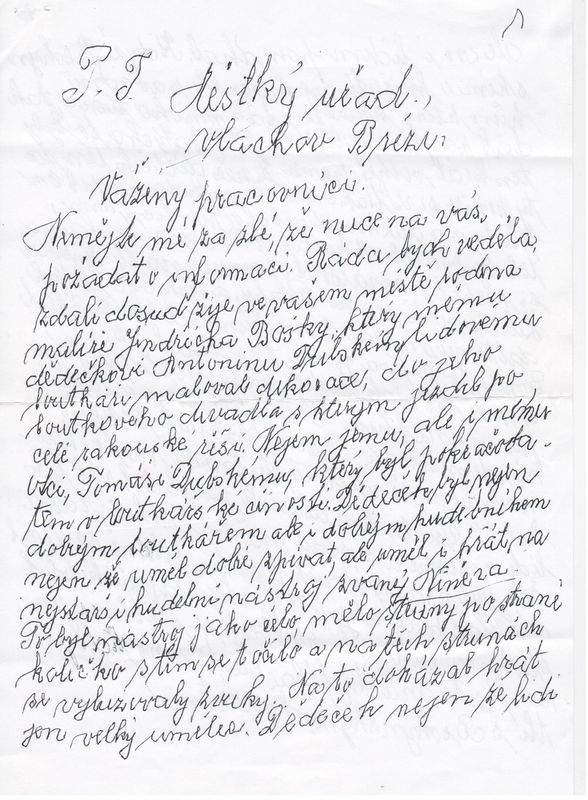 P. T. Městký uřad.,
Vlachov Březí.
Vážený pracovníci.
Nemějte mě za zlé, že nuce na vás,
požádat o informaci. Ráda bych veděla,
zdali dosud žije ve vašem městě rodina
malíře Jindřicha Bošky, který mému
dědečkovi Antoninu Dubskému lidovemu
loutkáři maloval dikorace, do jeho
loutkového divadla s kterým jezdil po
celé rakouské říši. Nejem jemu, ale i mému
otci, Tomáši Dubskému, který byl pokračova-
tem v loutkářské činosti. Dědeček byl nejen
dobrým loutkářem ale i dobrým hudebníkem
nejen že uměl dobře zpívat, ale uměl i hrát na
nejstarší hudební nástroj zvanej Niněra.
To byl nástroj jako čelo, mělo struny po straně
količko s tím se točilo a na těch strunách
se vyluzovaly zvuky. Na to dokázal hrát
jen velký umělec. Dědeček nejen že lidi